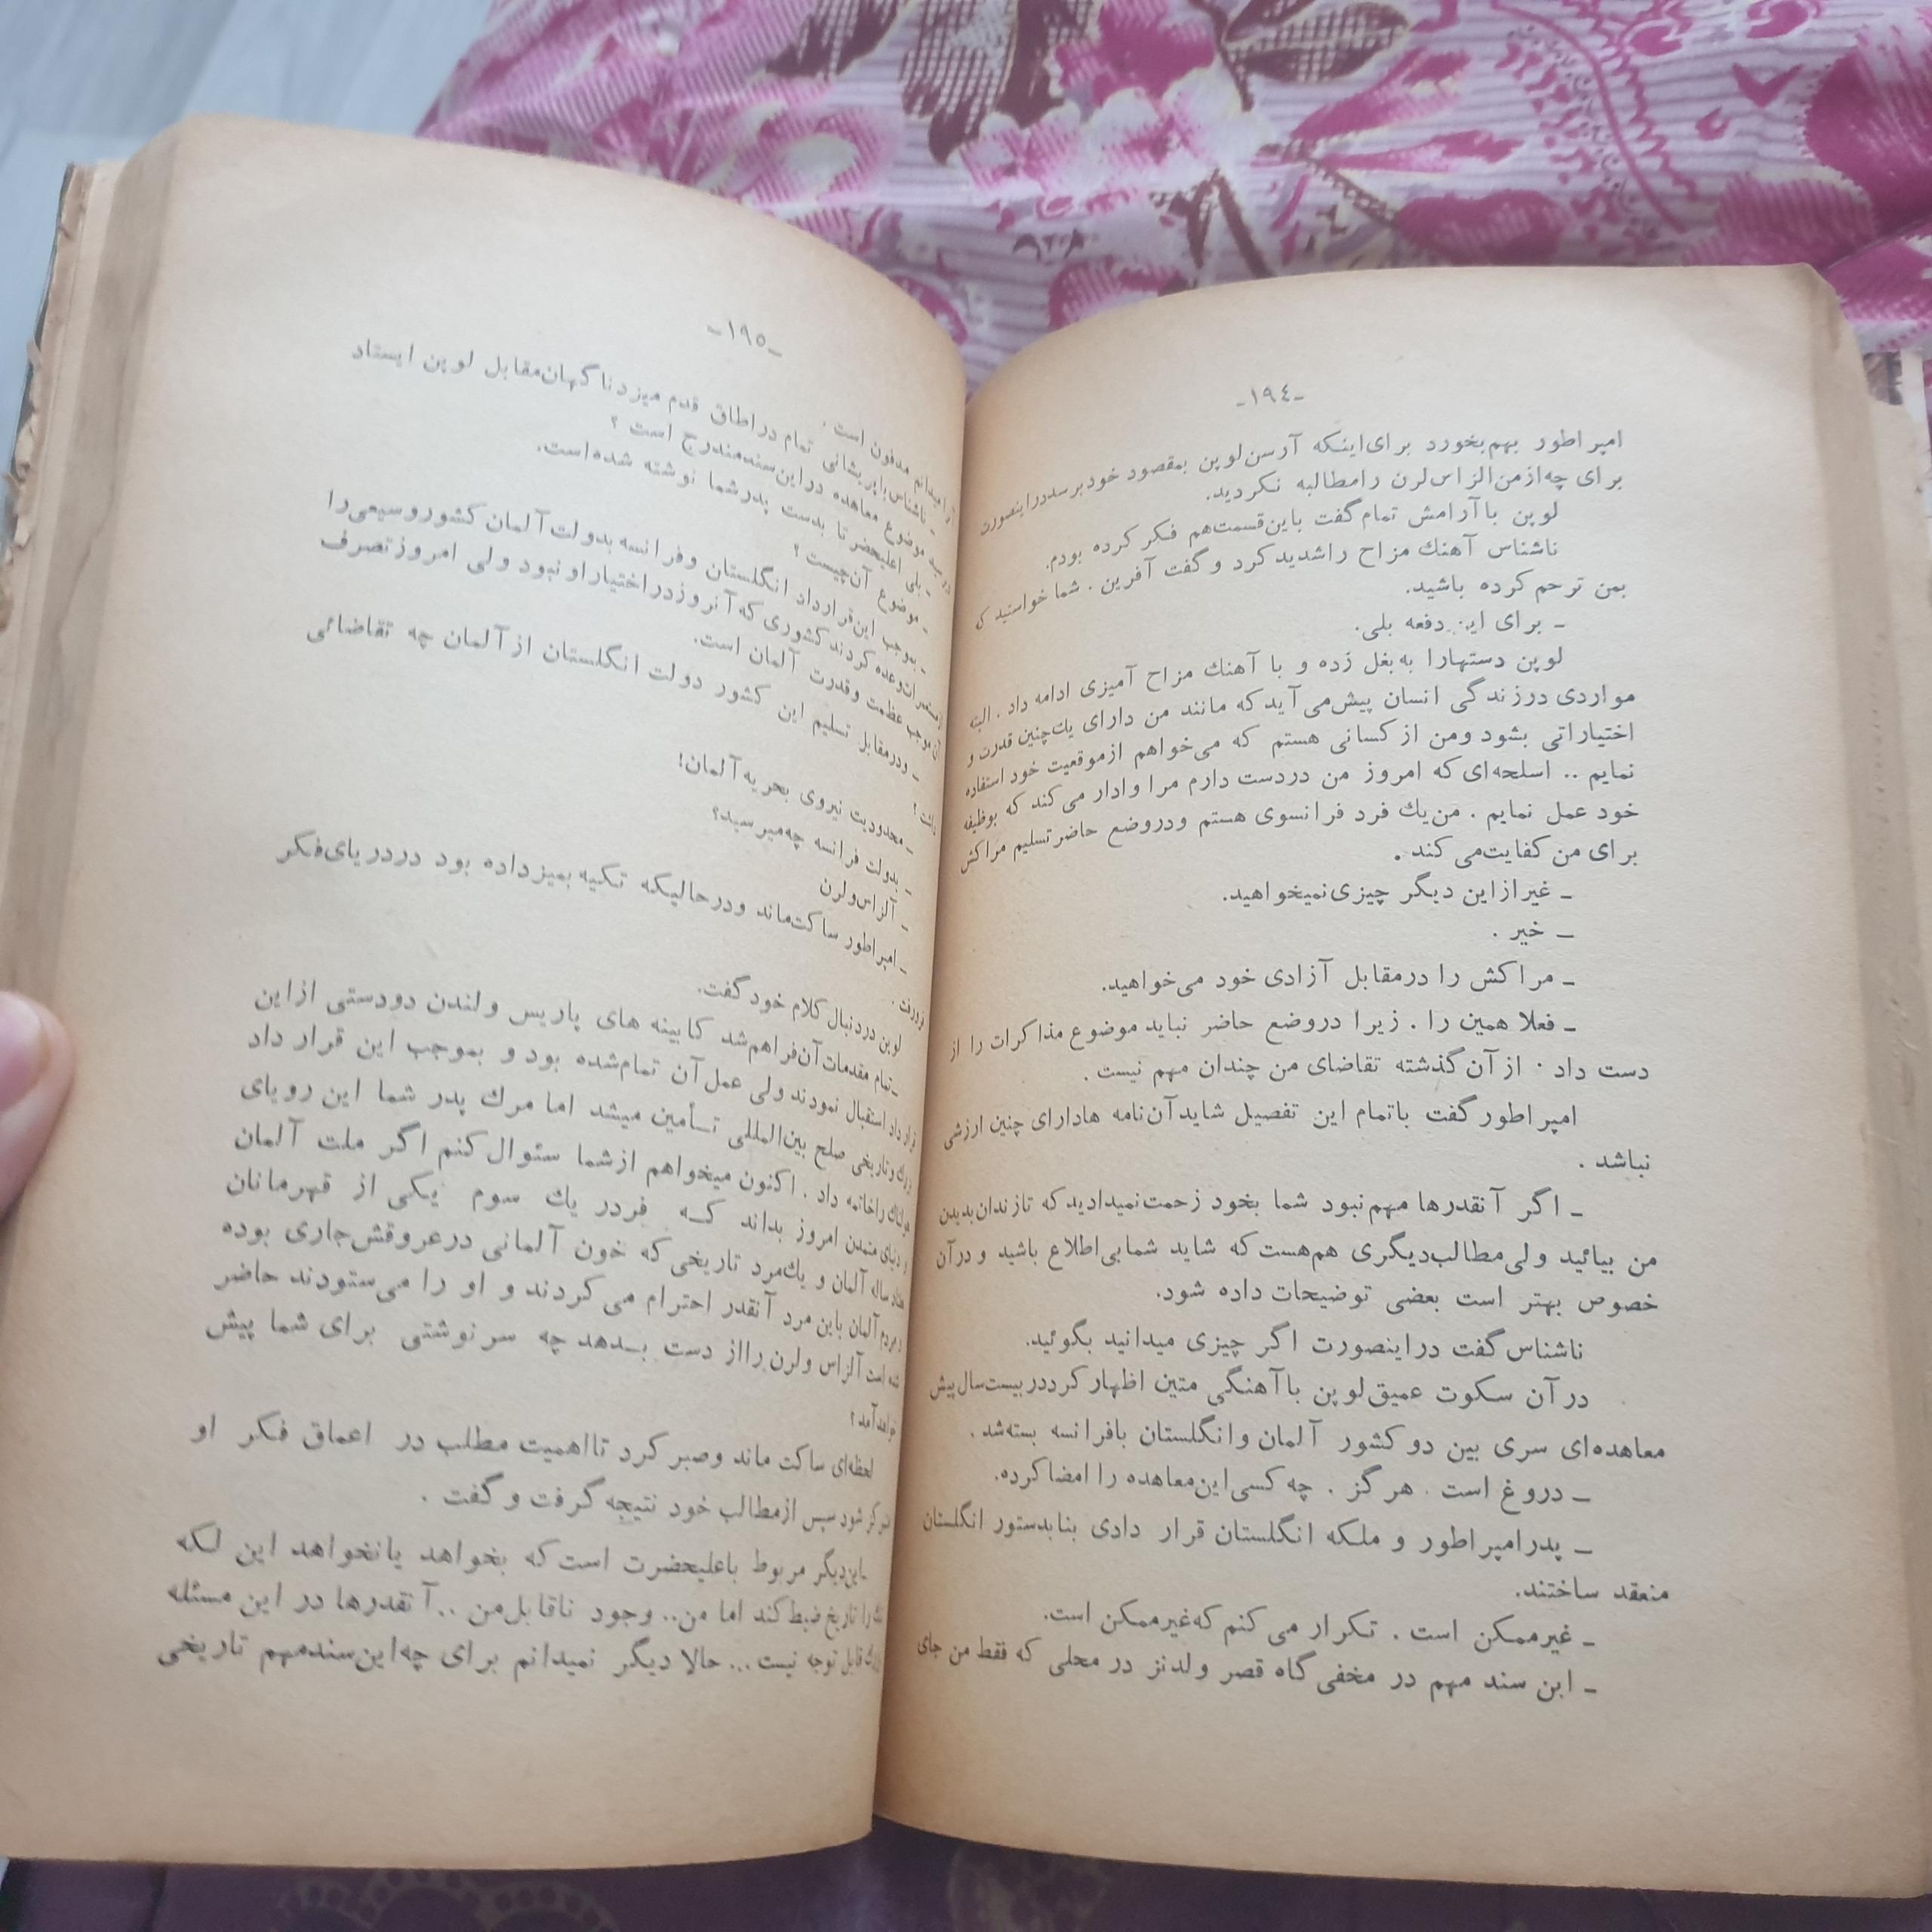 -۱۹٤-
امپراطور بهم‌بخورد برای‌اینکه آرسن‌لوپن بمقصود خودبرسددراینصورت
برای چه‌ازمن‌الزاس‌لرن رامطالبه نکردید.
لوپن باآرامش تمام‌گفت باین‌قسمت‌هم فکر کرده بودم.
ناشناس آهنك مزاح راشدیدکرد و گفت آفرین . شما خواستید ک
بمن ترحم‌کرده باشید.
ـ برای این دفعه بلی.
لوپن دستهارا به‌بغل زده و با آهنك مزاح آمیزی ادامه داد . البته
مواردی درزندگی انسان پیش‌می‌آیدکه مانند من دارای یك‌چنین قدرت و
اختیاراتی بشود ومن ازکسانی هستم که می‌خواهم ازموقعیت خود استفاده
نمایم .. اسلحه‌ای‌که امروز من دردست دارم مرا وادار می‌کند که بوظیفه
خود عمل نمایم . من‌یك فرد فرانسوی هستم ودروضع حاضرتسلیم مراکش
برای من کفایت‌می‌کند .
ـ غیرازاین دیگر چیزی‌نمیخواهید.
ـ خیر .
ـ مراکش را درمقابل آزادی خود می‌خواهید.
ـ فعلا همین را . زیرا دروضع حاضر نباید موضوع مذاکرات را از
دست داد . ازآن‌گذشته تقاضای من چندان مهم نیست .
امپراطورگفت باتمام این تفصیل شایدآن‌نامه هادارای چنین ارزشی
نباشد .
ـ اگر آنقدرها مهم‌نبود شما بخود زحمت‌نمیدادیدکه تازندان‌بدیدن
من بیائید ولی‌مطالب‌دیگری هم‌هست‌که شاید شمابی‌اطلاع باشید و درآن
خصوص بهتر است بعضی توضیحات داده شود.
ناشناس‌گفت دراینصورت اگر چیزی میدانید بگوئید.
درآن سکوت عمیق‌لوپن باآهنگی متین اظهارکرددربیست‌سال‌پیش
معاهده‌ای سری بین دوکشور آلمان وانگلستان بافرانسه بسته‌شد .
ـ دروغ است . هرگز . چه‌کسی‌این‌معاهده را امضاکرده.
ـ پدرامپراطور و ملکه انگلستان قرار دادی بنابدستور انگلستان
منعقد ساختند.
ـ غیرممکن است . تکرار می‌کنم که‌غیرممکن است.
ـ ابن سند مهم در مخفی‌گاه قصر ولدنز در محلی که فقط من جای
-۱۹٥-
میدانم مدفون است .
ـ ناشناس‌باپریشانی تمام دراطاق قدم میزدناگهان‌مقابل لوپن ایستاد
موضوع معاهده دراین‌سندمندرج است ؟
ـ بلی اعلیحضرتا بدست پدرشما نوشته شده‌است.
ـ موضوع آن‌چیست ؟
ـ بموجب این‌قرارداد انگلستان وفرانسه بدولت‌آلمان کشوروسیعی‌را
وعده‌کردند کشوری‌که آنروزدراختیاراو نبود ولی امروزتصرف
آن‌موجب عظمت وقدرت آلمان است.
ـ ودرمقابل تسلیم این کشور دولت انگلستان ازآلمان چه تقاضائی
داشت ؟
ـ محدودیت نیروی بحریه‌آلمان!
ـ بدولت فرانسه چه‌میرسید؟
ـ آلزاس‌ولرن
ـ امپراطور ساکت‌ماند ودرحالیکه تکیه‌بمیزداده بود دردریای‌فکر
فرورفت .
لوپن دردنبال کلام خودگفت.
ـ تمام مقدمات‌آن‌فراهم‌شد کابینه های پاریس ولندن دودستی ازاین
قرار داد استقبال نمودند ولی عمل‌آن تمام‌شده بود و بموجب این قرار داد
وتاریخی صلح بین‌المللی تأمین میشد اما مرك پدر شما این رویای
راخاتمه داد . اکنون میخواهم ازشما سئوال‌کنم اگر ملت آلمان
و دنیای متمدن امروز بداند که فردر یك سوم یکی از قهرمانان
ساله آلمان و یك‌مرد تاریخی‌که خون آلمانی درعروقش‌جاری بوده
و مردم آلمان باین مرد آنقدر احترام می‌کردند و او را می‌ستودند حاضر
شده است آلزاس ولرن رااز دست بدهد چه سرنوشتی برای شما پیش
خواهدآمد؟
لحظه‌ای ساکت ماند وصبرکرد تااهمیت مطلب در اعماق فکر او
شود سپس ازمطالب خود نتیجه گرفت وگفت .
ـ این‌دیگر مربوط باعلیحضرت است‌که بخواهد یانخواهد این لکه
را تاریخ‌ضبط‌کند اما من.. وجود ناقابل‌من ..آنقدرها در این مسئله
قابل توجه نیست ... حالا دیگر نمیدانم برای چه‌این‌سندمهم تاریخی